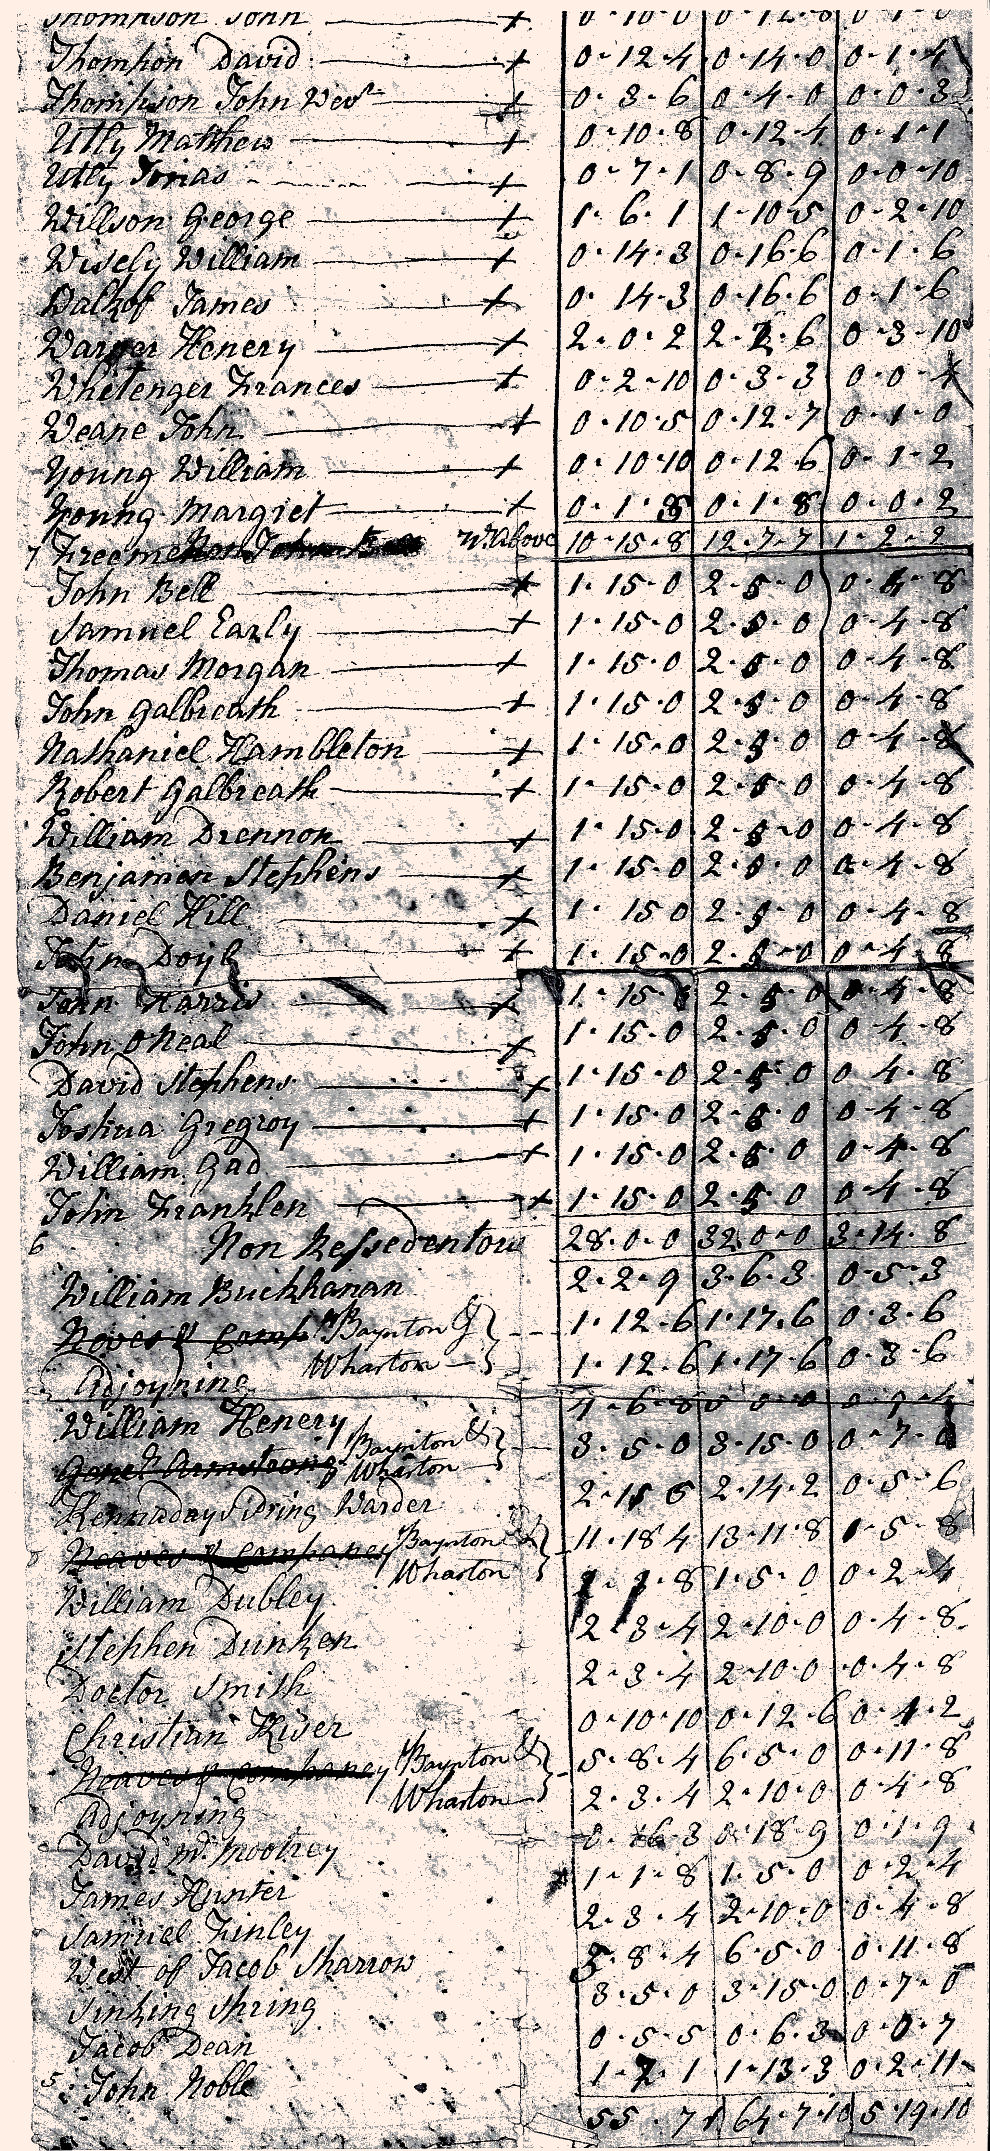 Thompson John + 0·10·0 0·12·8 0·1·0
Thomson David + 0·12·4 0·14·0 0·1·4
Thompson John + 0·3·6 0·4·0 0·0·3
Utly Matthew + 0·10·8 0·12·4 0·1·1
Utly Jonas + 0·7·1 0·8·9 0·0·10
Willson George + 1·6·1 1·10·5 0·2·10
Wisely William + 0·14·3 0·16·6 0·1·6
James + 0·14·3 0·16·6 0·1·6
Warger Henery + 2·0·2 2·7·6 0·3·10
Whetenger Frances + 0·2·10 0·3·3 0·0·4
Weane John + 0·10·5 0·12·7 0·1·0
Young William + 0·10·10 0·12·6 0·1·2
Young Margret + 0·1·8 0·1·8 0·0·2
7 Freemen Above 10·15·8 12·7·7 1·2·2
John Bell + 1·15·0 2·5·0 0·4·8
Samuel Early + 1·15·0 2·5·0 0·4·8
Thomas Morgan + 1·15·0 2·5·0 0·4·8
John Galbreath + 1·15·0 2·5·0 0·4·8
Nathaniel Hambleton + 1·15·0 2·5·0 0·4·8
Robert Galbreath + 1·15·0 2·5·0 0·4·8
William Drennon + 1·15·0 2·5·0 0·4·8
Benjamen Stephens + 1·15·0 2·0·0 0·4·8
Daniel Hill + 1·15·0 2·5·0 0·4·8
John Doyle + 1·15·0 2·5·0 0·4·8
John Harris + 1·15·0 2·5·0 0·4·8
John ONeal + 1·15·0 2·5·0 0·4·8
David Stephens + 1·15·0 2·5·0 0·4·8
Joshua Gregroy + 1·15·0 2·5·0 0·4·8
William Gad + 1·15·0 2·5·0 0·4·8
John Franklen + 1·15·0 2·5·0 0·4·8
6 Non Ressedentors 28·0·0 32·0·0 3·14·8
William Buckhanan 2·2·9 3·6·3 0·5·3
Neves & Comp Baynton & 1·12·6 1·17·6 0·3·6
Adjoyning Wharton 1·12·6 1·17·6 0·3·6
William Henery
Baynton & 3·5·0 3·15·0 0·7·0
Armstrong Wharton
Kennaday Sidring Warder 2·14·2 0·5·6
Neaves & Companey Baynton & 11·18·4 13·11·8 1·5·8
Wharton
William Dubley 1·1·8 1·5·0 0·2·4
Stephen Dunken 2·3·4 2·10·0 0·4·8
Doctor Smith 2·3·4 2·10·0 0·4·8
Christian Kiser 0·10·10 0·12·6 0·1·2
Neaves & Companey Baynton & 5·8·4 6·5·0 0·11·8
Adjoyning Wharton 2·3·4 2·10·0 0·4·8
David 0·16·3 0·18·9 0·1·9
James Hunter 1·1·8 1·5·0 0·2·4
Samuel Finley 2·3·4 2·10·0 0·4·8
West of Jacob Sharrow 5·8·4 6·5·0 0·11·8
Sinking Spring 3·5·0 3·15·0 0·7·0
Jacob Dean 0·5·5 0·6·3 0·0·7
5 John Noble 1·7·1 1·13·3 0·2·11
55·7·1 64·7·10 5·19·10